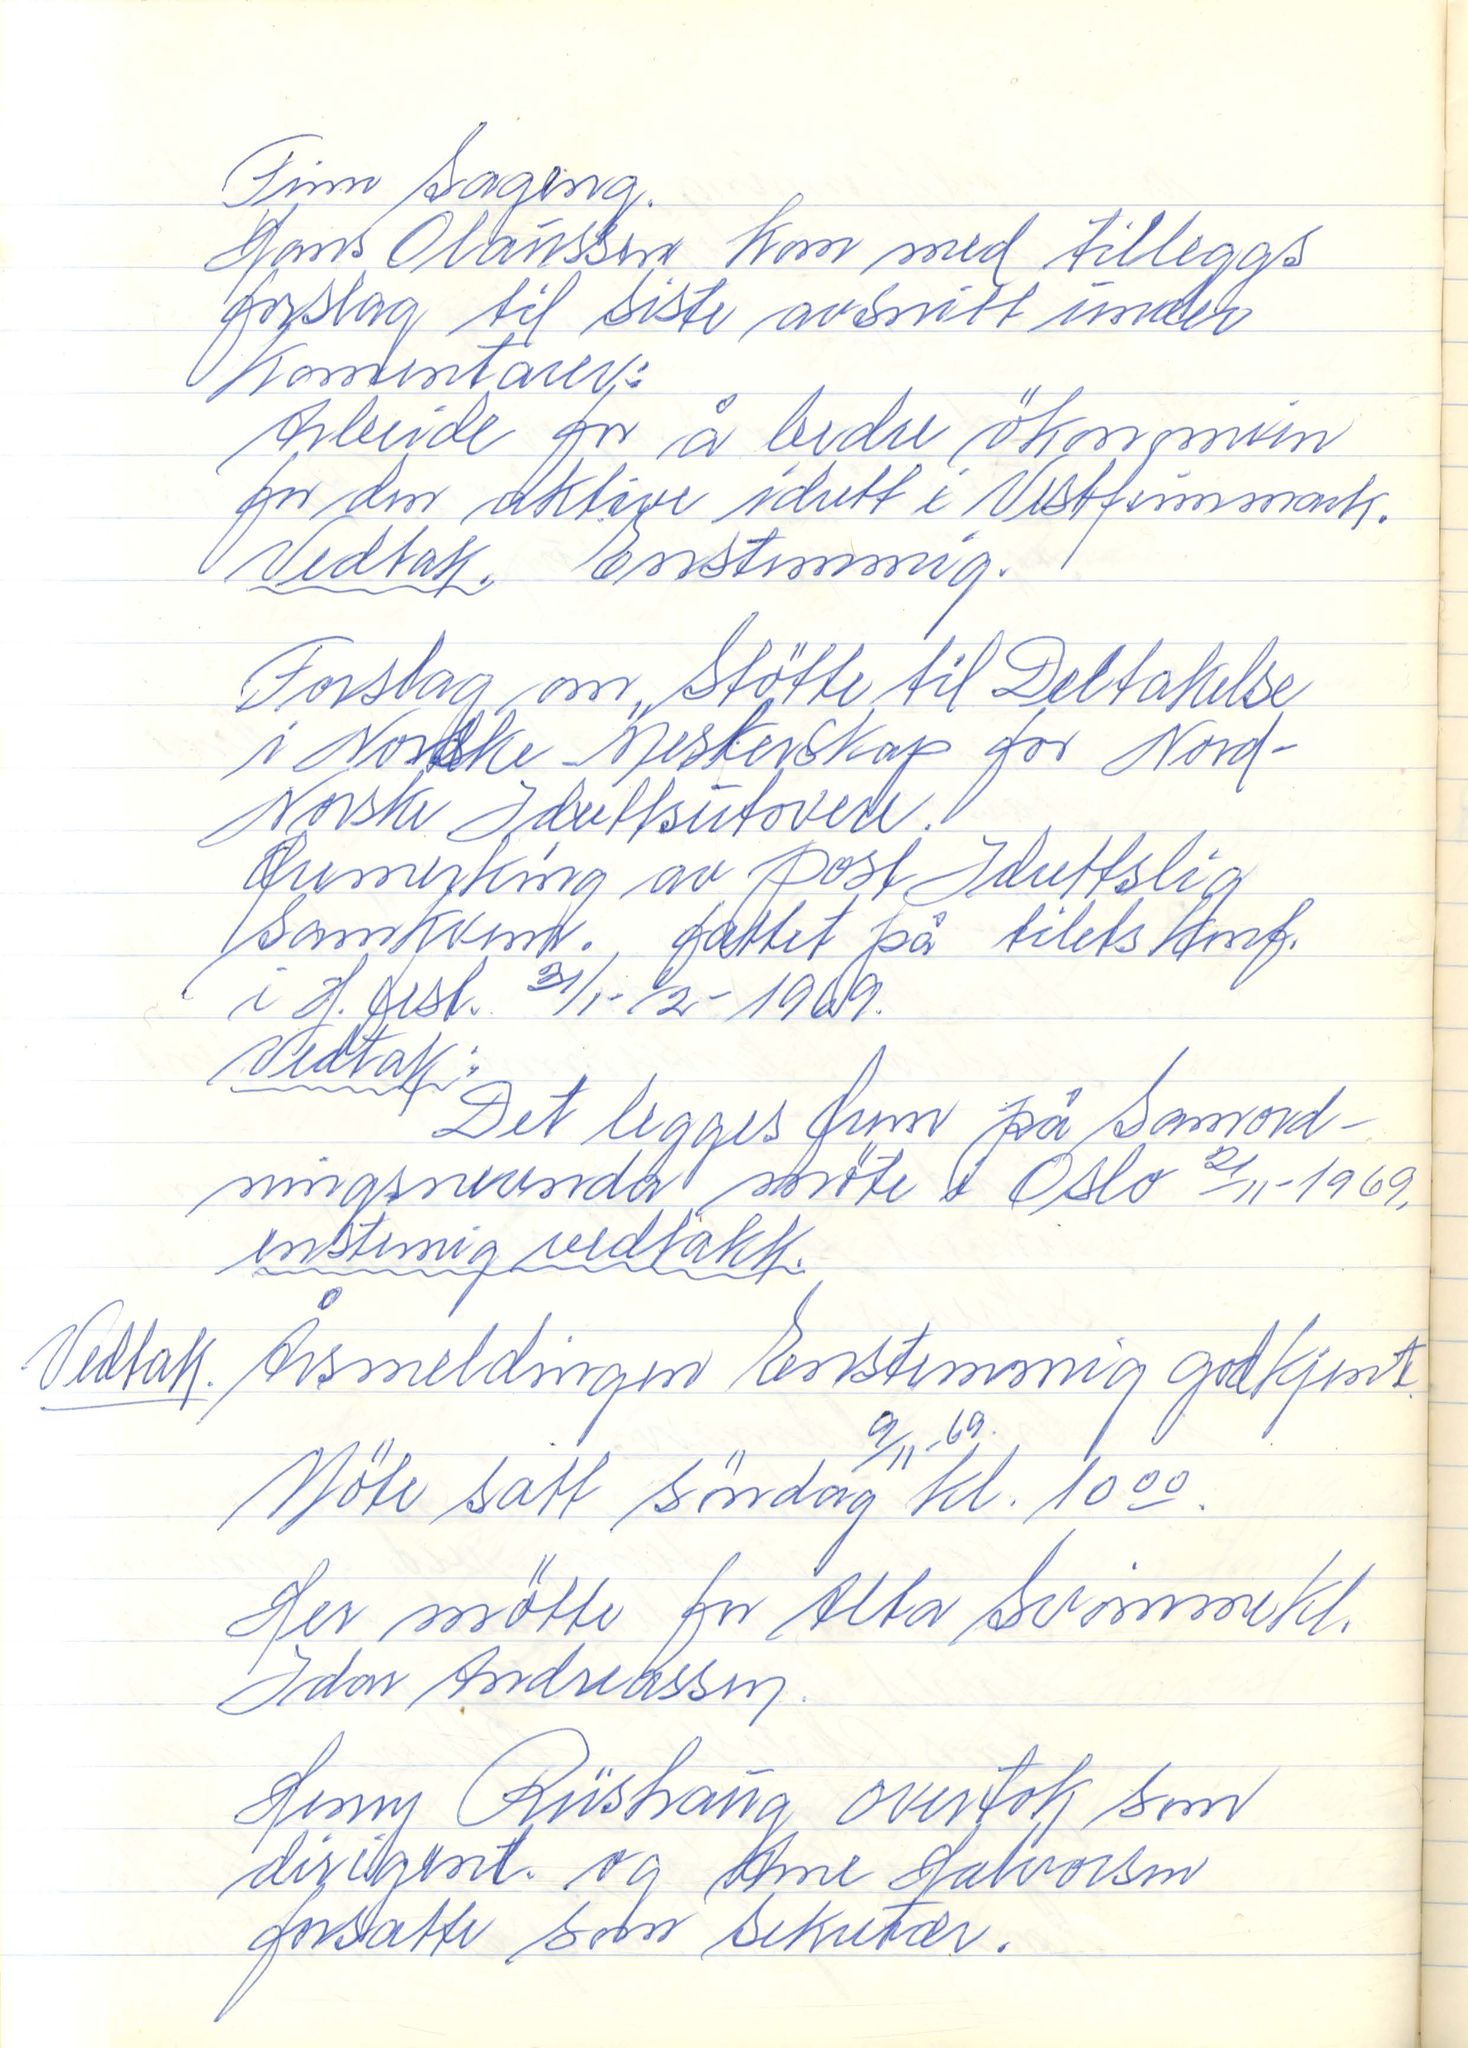 Finn Sageng.
Hans Olaussen kom med tilleggs
forslag til siste avsnitt under
Komentarer:
Arbeide for å bedre ökonomien
for den aktive idrett i Vestfinnmark.
Vedtak. Enstemmig.
Forslag om, Stötte til Deltakelse
i Norske Mesterskap for Nord-
Norske Idrettsutövere.
Fremerking av post Idrettslig
Samkvem. fattet på tilets konf.
i H.fest. 31/1-1/2-1969.
Vedtak:
Det legges frem på Samord-
ningsnevnda möte i Oslo 21/11-1969.
enstemig vedtakk.
Vedtak. Årsmeldingen Enstemmig godkjent.
9/11-69.
Möte satt söndag kl. 10 00.
Her mötte for Alta Svömmekl.
Idar Andreassen.
Henry Rüshaug overtok som
dirigent. og Arne Halvorsen
forsatte som sekretær.